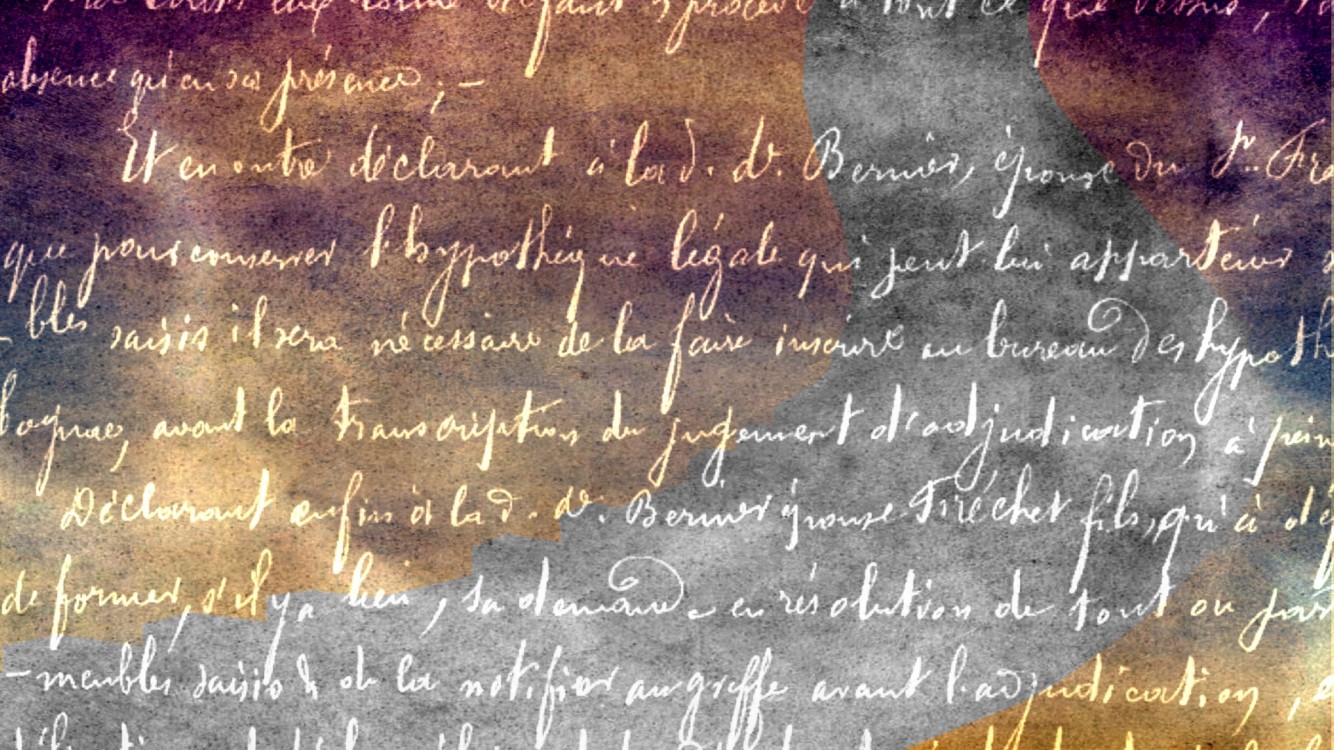 absence qu'en sa présence ; –
Et en outre déclarant à la d. de. Bernier, épouse du Sr. Fré
que pour conserver l'hypothèque légale qui peut lui appartenir s
- bles saisis il sera nécessaire de la faire inscrire au bureau des hypoth
avant la transcription du jugement d'adjudication à pein
Déclarant enfin à la d. de. Bernier épouse Fréchet fils, qu'à dé
de former, s'il y a lieu, sa demande en résolution de tout ou par
- meubles saisis & de la notifier au greffe avant l'adjudication,